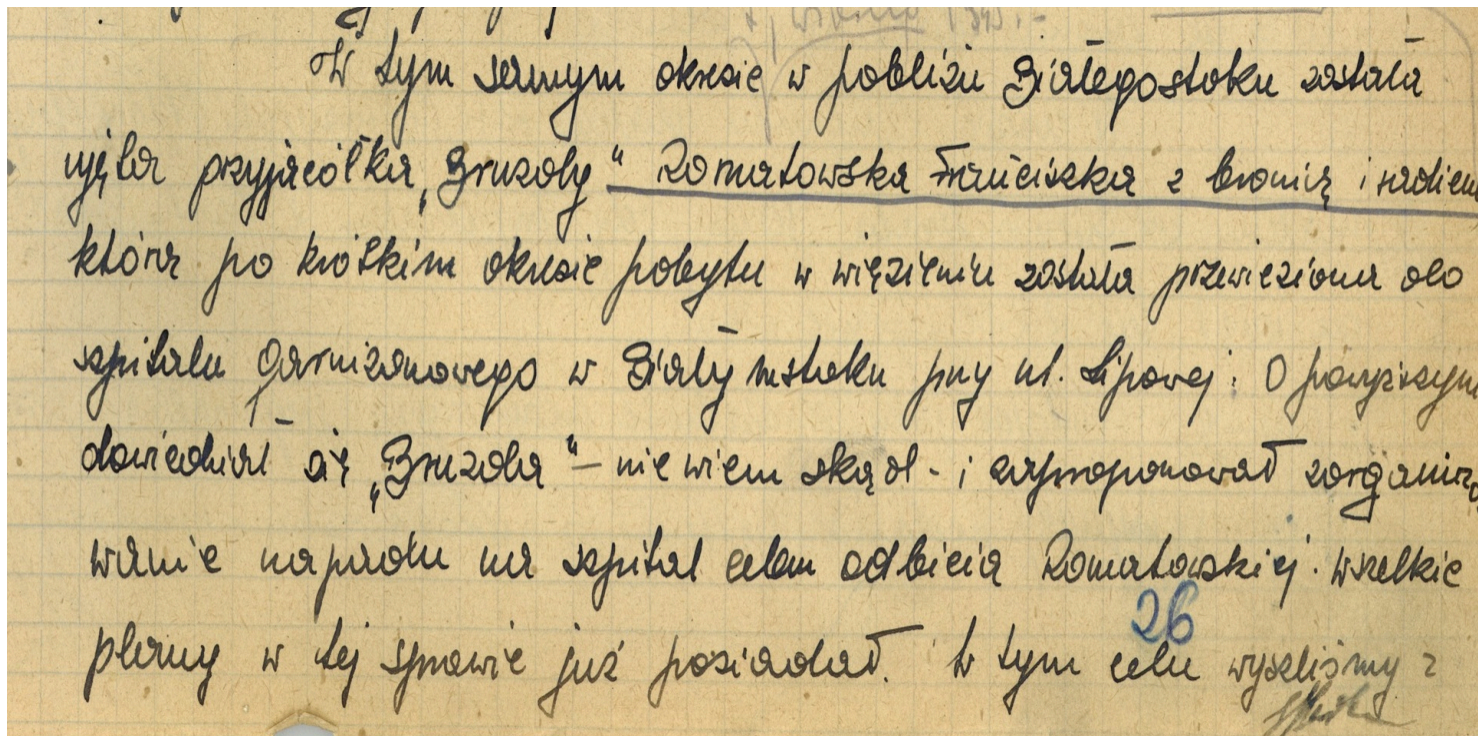 W tym samym okresie w pobliżu Białegostoku została
ujęta przyjaciółka „Bruzdy" Romatowska Franciszka z bronią i radiem
która po krótkim okresie pobytu w więzieniu została przewieziona do
szpitalu garnizonowego w Białymstoku przy ul. Lipowej. O powyższym
dowiedział się „Bruzda" – nie wiem skąd - i zaproponował zorganizo
wanie napadu na szpital celem odbicia Romatowskiej. Wszelkie
plany w tej sprawie już posiadał. W tym celu wyszliśmy z
26